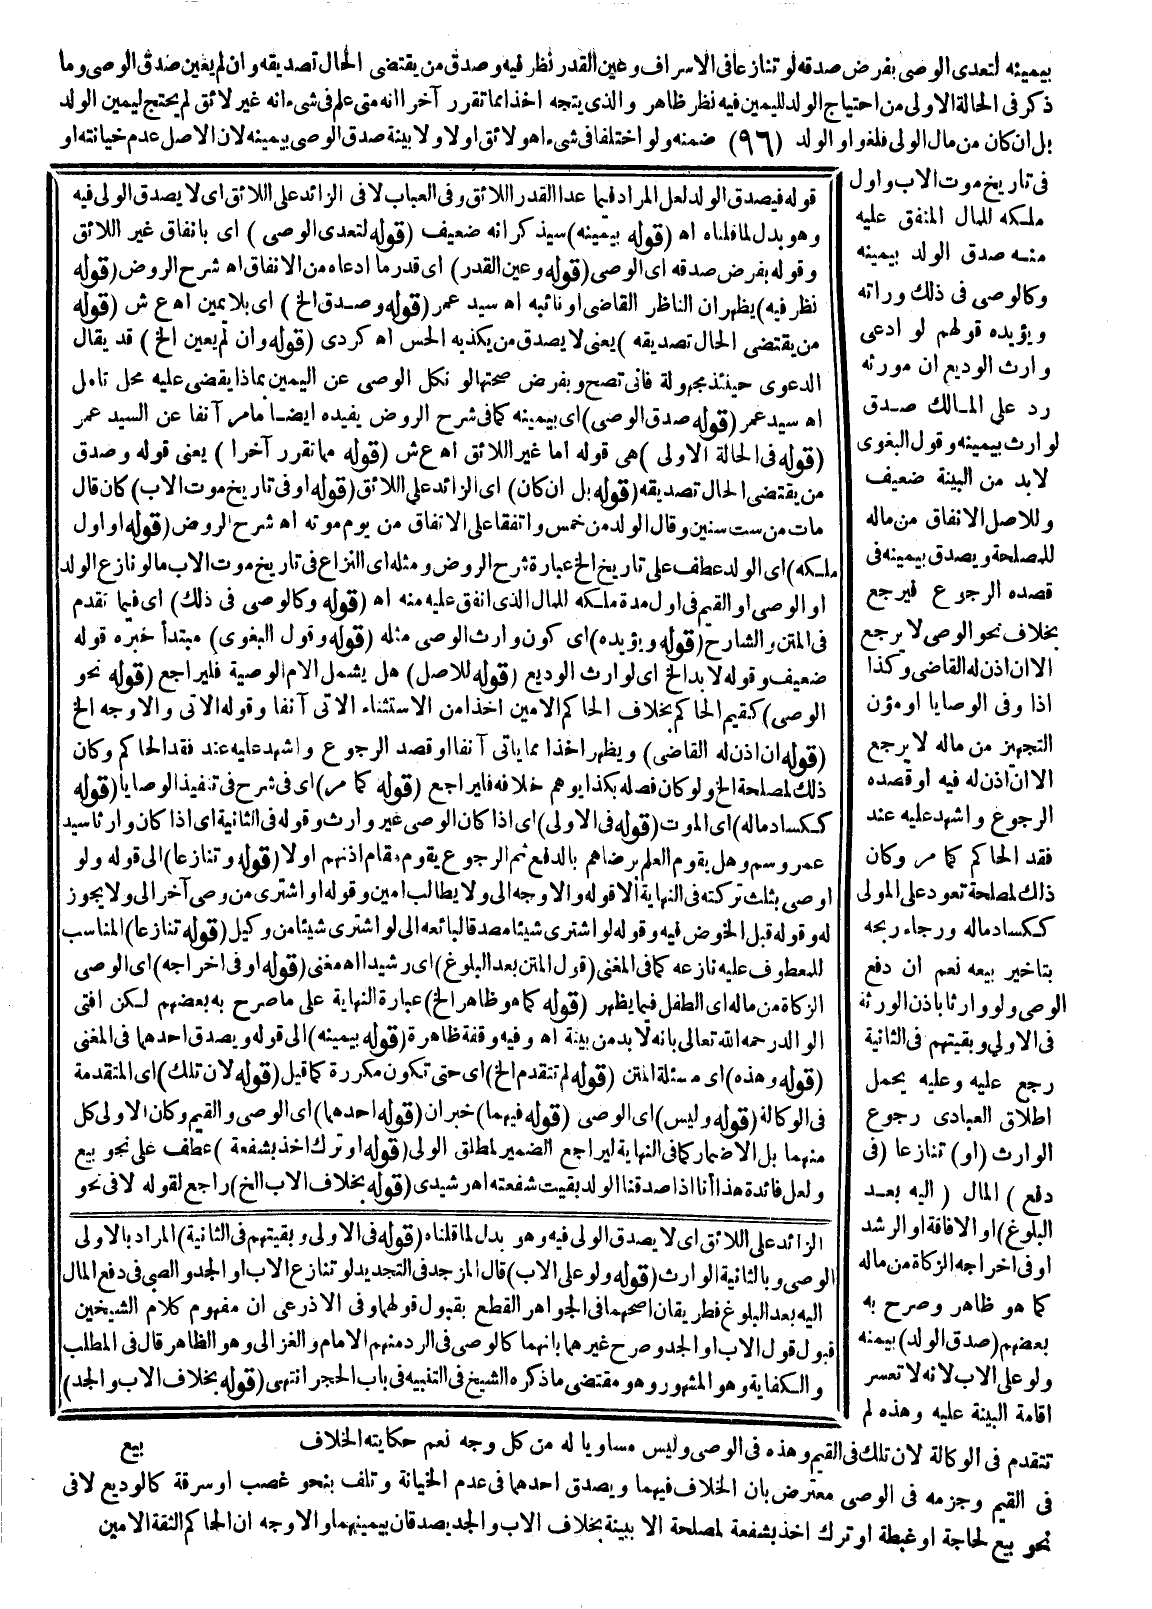 بيمينه لتعدى الوصى بفرض صدقه لو تنازعا فى الاسراف وعين القدر نظر فيه وصدق من يقتضى الحال تصديقه وان لم يعين صدق الوصى وما
ذكر فى الحالة الاولى من احتياج الولد لليمين فيه نظر ظاهر والذى يتجه اخذا مما تقرر آخرا انه متى علم فى شىء انه غير لائق لم يحتج ليمين الولد
بل ان كان من مال الولى فلغو او الولد (٩٦) ضمنه ولو اختلفا فى شىء اهو لائق اولا ولا بينة صدق الوصى بيمينه لان الاصل عدم خيانته او
فى تاريخ موت الاب واول
ملكه للمال المنفق عليه
منه صدق الولد بيمينه
وكالوصى فى ذلك وراثه
ويؤيده قولهم لو ادعى
وارث الوديع ان مورثه
رد على المالك صدق
لوارث بيمينه وقول البغوى
لابد من البينة ضعيف
وللاصل الانفاق من ماله
للمصلحة ويصدق بيمينه فى
قصده الرجوع فيرجع
بخلاف نحو الوصى لا يرجع
الا ان اذن له القاضى وكذا
اذا وفى الوصايا او مؤن
التجهيز من ماله لا يرجع
الا ان اذن له فيه او قصده
الرجوع واشهد عليه عند
فقد الحاكم كما مر وكان
ذلك لمصلحة تعود على المولى
ككساد ماله ورجاء ربحه
بتاخير بيعه نعم ان دفع
الوصى ولو وارثا باذن الورثة
فى الاولى وبقيتهم فى الثانية
رجع عليه وعليه يحمل
اطلاق العبادى رجوع
الوارث (او) تنازعا (فى
دفع) المال (اليه بعد
البلوغ) او الافاقة او الرشد
او فى اخراجه الزكاة من ماله
كما هو ظاهر وصرح به
بعضهم (صدق الولد) بيمينه
ولو على الاب لانه لا تعسر
اقامة البينة عليه وهذه لم
تتقدم فى الوكالة لان تلك فى القيم وهذه فى الوصى وليس مساويا له من كل وجه نعم حكايته الخلاف
فى القيم وجزمه فى الوصى معترض بان الخلاف فيهما ويصدق احدهما فى عدم الخيانة وتلف بنحو غصب او سرقة كالوديع لا فى
نحو بيع لحاجة او غبطة او ترك اخذ بشفعة لمصلحة الا ببينة بخلاف الاب والجد يصدقان بيمينهما والاوجه ان الحاكم الثقة الامين
قوله فيصدق الولد لعل المراد فيما عدا القدر اللائق وفى العباب لا فى الزائد على اللائق اى لا يصدق الولى فيه
وهو بدل لما قلناه اه (قوله بيمينه) سيذكر انه ضعيف (قوله لتعدى الوصى) اى بانفاق غير اللائق
وقوله بفرض صدقه اى الوصى (قوله وعين القدر) اى قدر ما ادعاه من الانفاق اه شرح الروض (قوله
نظر فيه) يظهر ان الناظر القاضى او نائبه اه سيد عمر (قوله وصدق الخ) اى بلا يمين اه ع ش (قوله
من يقتضى الحال تصديقه) يعنى لا يصدق من يكذبه الحس اه كردى (قوله وان لم يعين الخ) قد يقال
الدعوى حينئذ مجهولة فانى تصح وبفرض صحتها لو نكل الوصى عن اليمين بماذا يقضى عليه محل تامل
اه سيد عمر (قوله صدق الوصى) اى بيمينه كما فى شرح الروض يفيده ايضا مامر آنفا عن السيد عمر
(قوله فى الحالة الاولى) هى قوله اما غير اللائق اه ع ش (قوله مما تقرر آخرا) يعنى قوله وصدق
من يقتضى الحال تصديقه (قوله بل ان كان) اى الزائد على اللائق (قوله او فى تاريخ موت الاب) كان قال
مات من ست سنين وقال الولد من خمس واتفقا على الانفاق من يوم موته اه شرح الروض (قوله او اول
ملكه) اى الولد عطف على تاريخ الخ عبارة شرح الروض ومثله اى النزاع فى تاريخ موت الاب مالو نازع الولد
او الوصى او القيم فى اول مدة ملكه للمال الذى انفق عليه منه اه (قوله وكالوصى فى ذلك) اى فيما تقدم
فى المتن والشارح (قوله ويؤيده) اى كون وارث الوصى مثله (قوله وقول البغوى) مبتدأ خبره قوله
ضعيف وقوله لابد الخ اى لوارث الوديع (قوله للاصل) هل يشمل الام الوصية فليراجع (قوله نحو
الوصى) كقيم الحاكم بخلاف الحاكم الامين اخذا من الاستثناء الآتى آنفا وقوله الآتى والاوجه الخ
(قوله ان اذن له القاضى) ويظهر اخذا مما ياتى آنفا او قصد الرجوع واشهد عليه عند فقد الحاكم وكان
ذلك لمصلحة الخ ولو كان فصله بكذا يوهم خلافه فليراجع (قوله كما مر) اى فى شرح فى تنفيذ الوصايا (قوله
ككساد ماله) اى الموت (قوله فى الاولى) اى اذا كان الوصى غير وارث وقوله فى الثانية اى اذا كان وارثا سيد
عمر وسم وهل يقوم العلم برضاهم بالدفع ثم الرجوع يقوم مقام اذنهم اولا (قوله وتنازعا) الى قوله ولو
اوصى بثلث تركته فى النهاية الا قوله والاوجه الى ولا يطالب امين وقوله او اشترى من وصى آخر الى ولا يجوز
له وقوله قبل الخوض فيه وقوله لو اشترى شيئا مصدقا لبائعه الى لو اشترى شيئا من وكيل (قوله تنازعا) المناسب
للمعطوف عليه نازعه كما فى المغنى (قول المتن بعد البلوغ) اى رشيدا اه مغنى (قوله او فى اخراجه) اى الوصى
الزكاة من ماله اى الطفل فيما يظهر (قوله كما هو ظاهر الخ) عبارة النهاية على ما صرح به بعضهم لكن افتى
الوالد رحمه الله تعالى بانه لابد من بينة اه وفيه وقفة ظاهرة (قوله بيمينه) الى قوله ويصدق احدهما فى المغنى
(قوله وهذه) اى مسئلة المتن (قوله لم تتقدم الخ) اى حتى تكون مكررة كما قيل (قوله لان تلك) اى المتقدمة
فى الوكالة (قوله وليس) اى الوصى (قوله فيهما) خبر ان (قوله احدهما) اى الوصى والقيم وكان الاولى كل
منهما بل الاضمار كما فى النهاية ليراجع الضمير لمطلق الولى (قوله او ترك اخذ بشفعة) عطف على نحو بيع
ولعل فائدة هذا أنا اذا صدقنا الولد بقيت شفعته اه رشيدى (قوله بخلاف الاب الخ) راجع لقوله لا فى نحو
الزائد على اللائق اى لا يصدق الولى فيه وهو بدل لما قلناه (قوله فى الاولى وبقيتهم فى الثانية) المراد بالاولى
الوصى وبالثانية الوارث (قوله ولو على الاب) قال المزجد فى التجديد لو تنازع الاب او الجد والصبى فى دفع المال
اليه بعد البلوغ فطريقان اصحهما فى الجواهر القطع بقبول قولهما وفى الاذرعى ان مفهوم كلام الشيخين
قبول قول الاب او الجد وصرح غيرهما بانهما كالوصى فى الرد منهم الامام والغزالى وهو الظاهر قال فى المطلب
والكفاية وهو المشهور وهو مقتضى ما ذكره الشيخ فى التنبيه فى باب الحجر انتهى (قوله بخلاف الاب والجد)
بيع